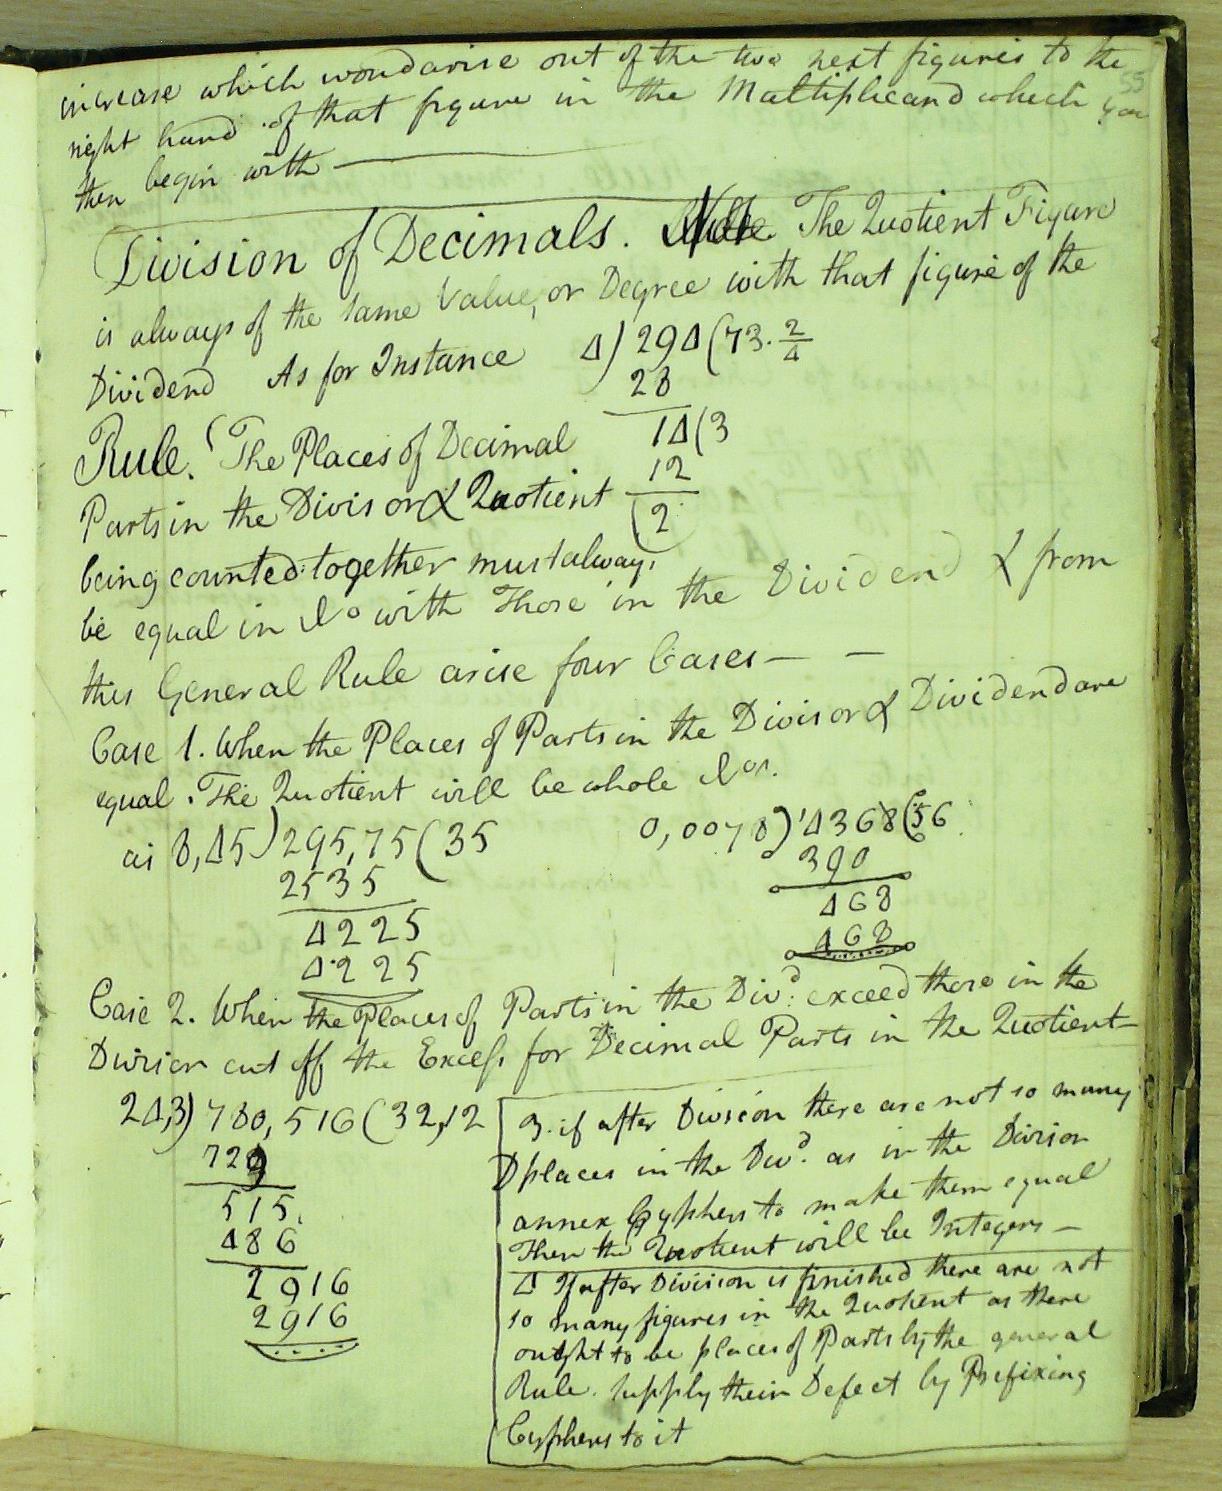 increase which woud arise out of the two next figures to the
55
right hand of that figure in the Multiplicand which you
then begin with —
Division of Decimals. Note. The Quotient Figure
is always of the same Value, or Degree with that figure of the
Dividend As for Instance 4) 294 (73. 2/4
28
Rule. The Places of Decimal 14(3
12
Parts in the Divisor & Quotient (2
being counted together must always
be equal in No with Those in the Dividend & from
this General Rule arise four Cases — —
Case 1. When the Places of Parts in the Divisor & Dividend are
equal. The Quotient will be whole Nos.
as 8,45) 295,75 (35 0,0078) ,4368 (56
2535 390
4225 468
4225 468
Case 2. When the Places of Parts in the Divd: exceed those in the
Divisor cut off the Excess for Decimal Parts in the Quotient
24,3) 780,516 (32,12
729
515
486
2916
2916
3. if after Division there are not so many
Dplaces in the Divd. as in the Divisor
annex Cyphers to make them equal
Then the Quotient will be Integers —
4 If after Division is finished there are not
so many figures in the Quotient as there
ought to be places of Parts by the general
Rule. supply their Defect by Prefixing
Cyphers to it